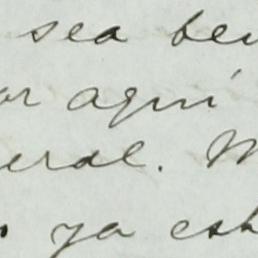 sea ben
or aquí
eral. M
ya est